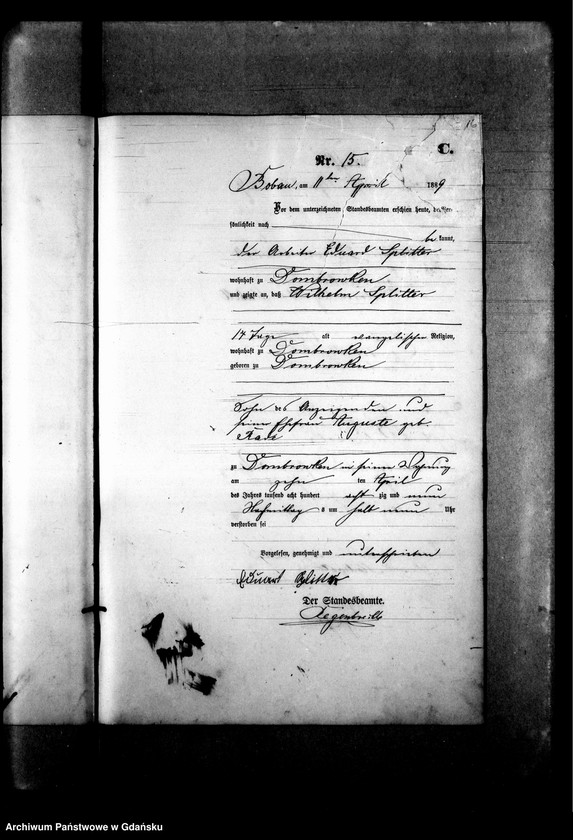 16
C.
Nr. 15.
Bobau, am 11ten April 1889
Vor dem unterzeichneten Standesbeamten erschien heute, der Per-
sönlichkeit nach
be kannt,
der Arbeiter Eduard Splitter
wohnhaft zu Dombrowken
und zeigte an, daß Wilhelm Splitter
14 Tage alt evangelischer Religion,
wohnhaft zu Dombrowken
geboren zu Dombrowken
Sohn des Anzeigenden und
seiner Ehefrau Auguste geb.
zu Dombrowken in seiner Wohnung
am zehn ten April
des Jahres tausend acht hundert acht zig und neun
Nachmittag s um halb neun Uhr
verstorben sei
Vorgelesen, genehmigt und unterschrieben
Eduart Splitter
Der Standesbeamte.
Archiwum Państwowe w Gdańsku